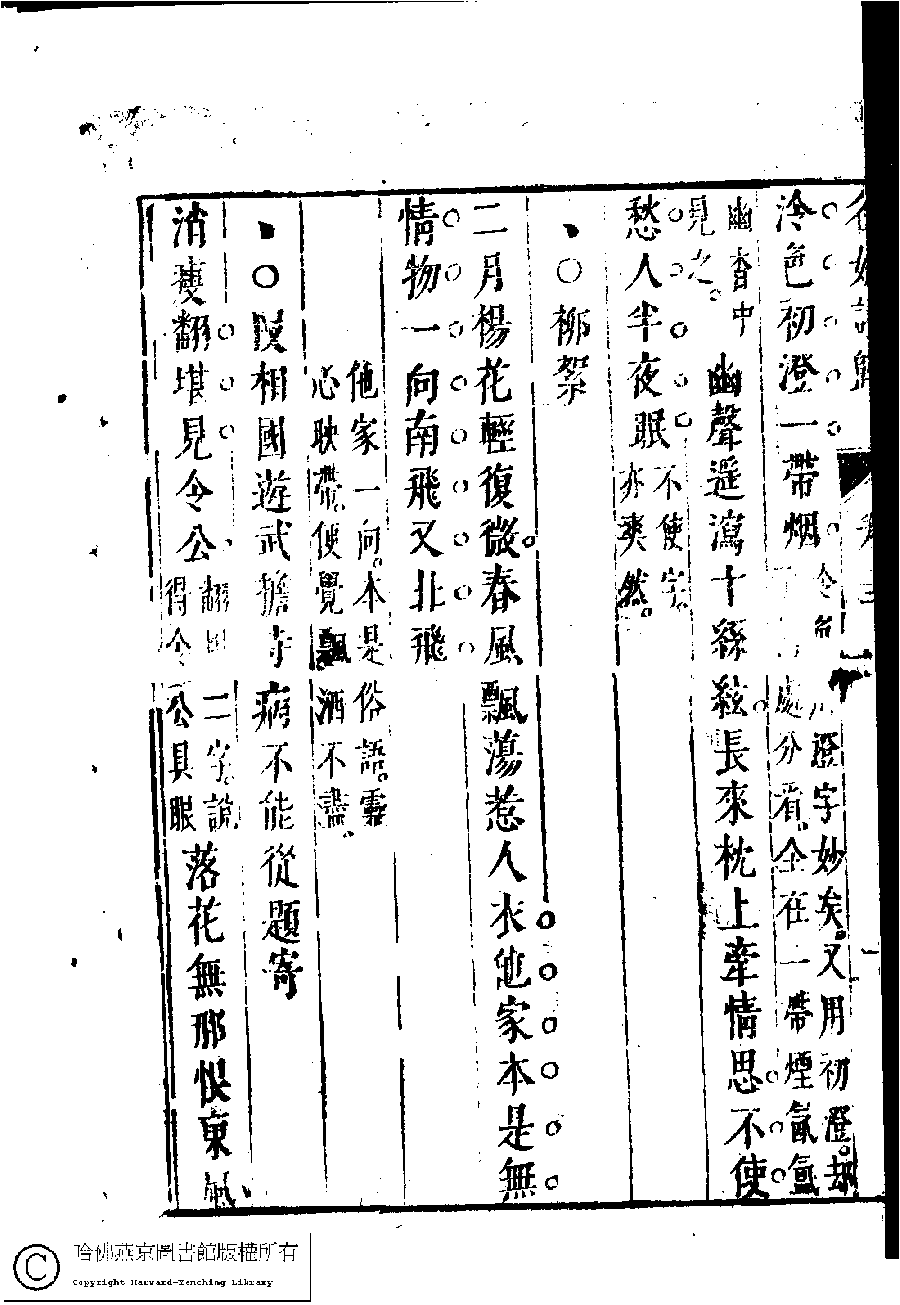 名媛詩歸 卷
冷色初澄一帶烟 澄字妙矣。又用初澄。却
處分看。全在一帶煙氤氳
幽香中
見之。
幽聲遥瀉十絲絃。長來枕上牽情思。不使
愁人半夜眠 不使字。
亦爽然。
○柳絮
二月楊花輕復微。春風飄蕩惹人衣他家本是無
情物一向南飛又北飛
他家一向。本是俗語。靈
心映帶。便覺飄洒不盡。
○段相國遊武擔寺病不能從題寄
消瘦翻堪見令公 翻堪二字。說
得令公具眼
落花無那恨東風
哈佛燕京圖書館版權所有
Copyright Harvard-Yenching Library